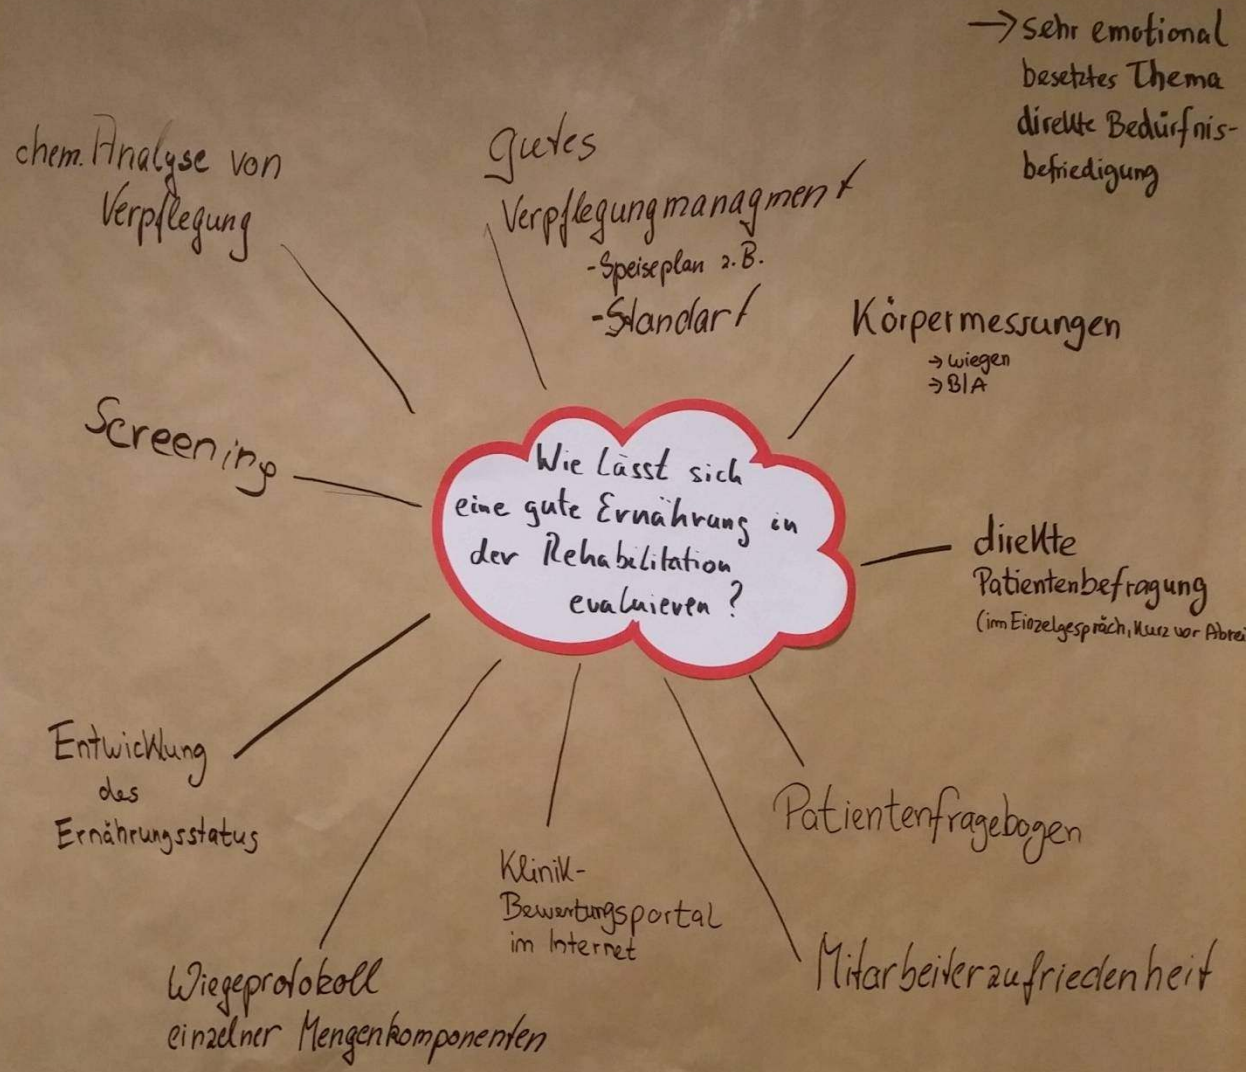 → sehr emotional
besetztes Thema
direkte Bedürfnis-
befriedigung
chem. Analyse von
Verpflegung
gutes
Verpflegungmanagment
- Speiseplan z.B.
- Standart
Körpermessungen
→ wiegen
→ BIA
Screening
Wie lässt sich
eine gute Ernährung in
der Rehabilitation
evaluieren?
direkte
Patientenbefragung
(im Einzelgespräch, kurz vor Abrei
Entwicklung
des
Ernährungsstatus
Patientenfragebogen
Klinik-
Bewertungsportal
im Internet
Mitarbeiterzufriedenheit
Wiegeprotokoll
einzelner Mengenkomponenten